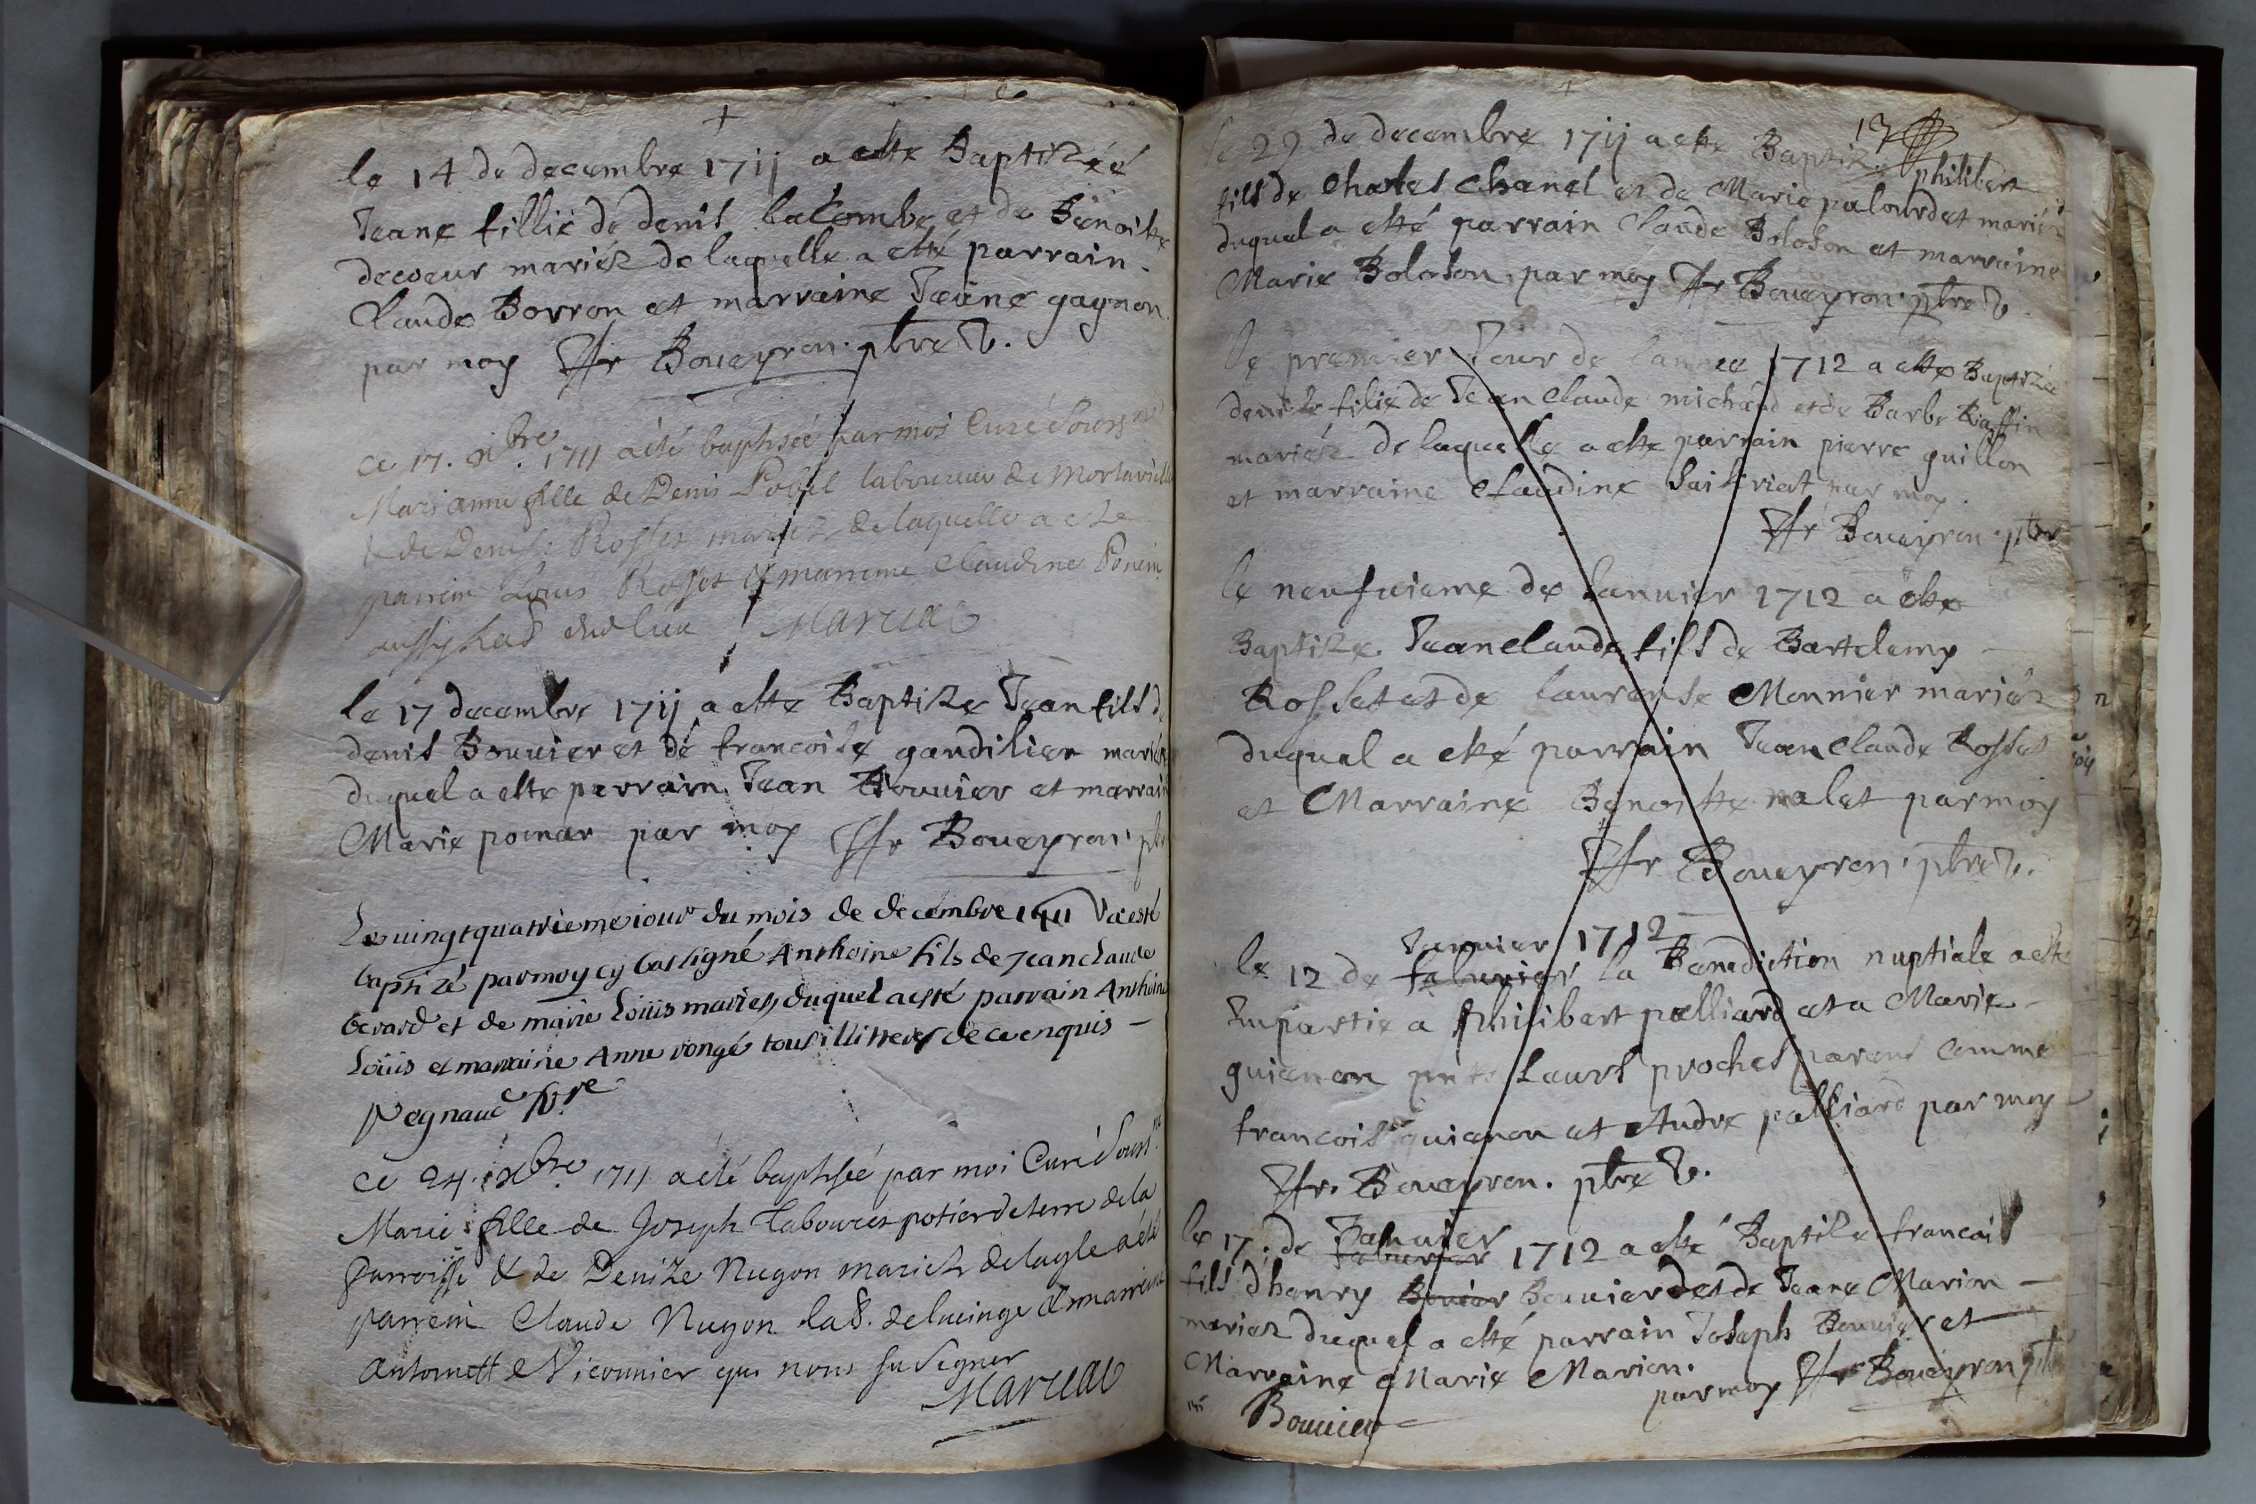 le 14 de decembre 1711 a este Baptizéé
Jeane fillie de denis lacombe et de Benoiste
decoeur mariéz de laquelle a esté parrain
Claude Borron et marraine Jeane gagnon
par moy ffr Boueyron. ptre V.
ce 17. xbre. 1711 a été baptisée par moi Curé Sous.né
Marianne fille de Denis Pobel laboureur de
& de Denise Rosset mariez de laquelle a ete
parrein Louis Rosset & marreine Claudine
aussy dud lieu Mareal
le 17 decembre 1711 a este Baptize Jean fils de
denis Bouuier et de francoise gandilier mariéz
duquel a este parrain Jean Bouuier et marraine
Marie ponar par moy ffr Boueyron. ptre
Le vingt quatrieme iour du mois de decembre 1711 a esté
baptizé par moy cy bas signé Anthoine fils de Jean claude
berard et de marie Loüis maries, duquel a esté parrain Anthoine
Loüis et marraine Anne rongé tous illitteres de ce enquis
Reynaud ptre
Ce 24. xbre. 1711 a été baptisée par moi Curé Souss.né
Marie fille de Joseph Taboures potier de terre de la
parroisse & de Denize Nugon mariez de laqle a été
parrein Claude Nugon lab. de lucinge & marreine
Antoinette Viconnier qui n'ont su signer
Mareal
13
le 29 de decembre 1711 a este Baptize philibert
fils de Charles Chanel et de Marie palourdet mariéz
duquel a esté parrain Claude Boloson et marraine
Marie Boloson, par moy ffr Boueyron. ptre V.
le premier Jour de lannee 1712 a este Baptizée
denise filie de Jean Claude michaud et de Barbe Raffin
mariéz de laquelle a este parrain pierre guillon
et marraine Claudine par moy.
ffr Boueyron. ptre
le neufuieme de Januier 1712 a este
Baptize Jean Claude fils de Bartelemy
Rosset et de laurense Monnier mariéz
duquel a esté parrain Jean Claude Rosset
et Marraine Benoitte malet par moy
ffr Boueyron. ptre V.
Januier 1712
le 12 de la Benediction nuptiale a este
Impartie a philibert palliard et a Marie
guienon leurs proches parens comme
francois guienon et Andre palliard par moy
ffr. Boueyron. ptre V.
le 17. de Januier 1712 a esté Baptize francois
fils dhenry Bouuier et de Jeane Marion
mariez duquel a esté parrain Joseph Bouuier et
Marraine Marie Marion.
par moy ffr Boueyron ptre
Bouuier